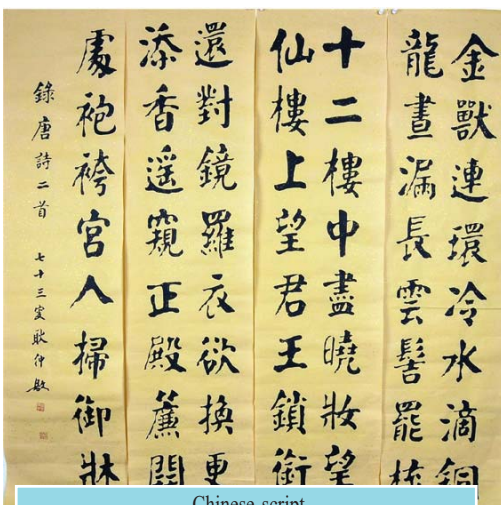 金獸連環冷水滴銅
龍晝漏長雲髻罷梳
十二樓中盡曉妝望
仙樓上望君王鎖銜
還對鏡羅衣欲換更
添香遥窺正殿簾開
處袍袴宮人掃御牀
錄唐詩二首 七十三叟耿仲敏
Chinese script